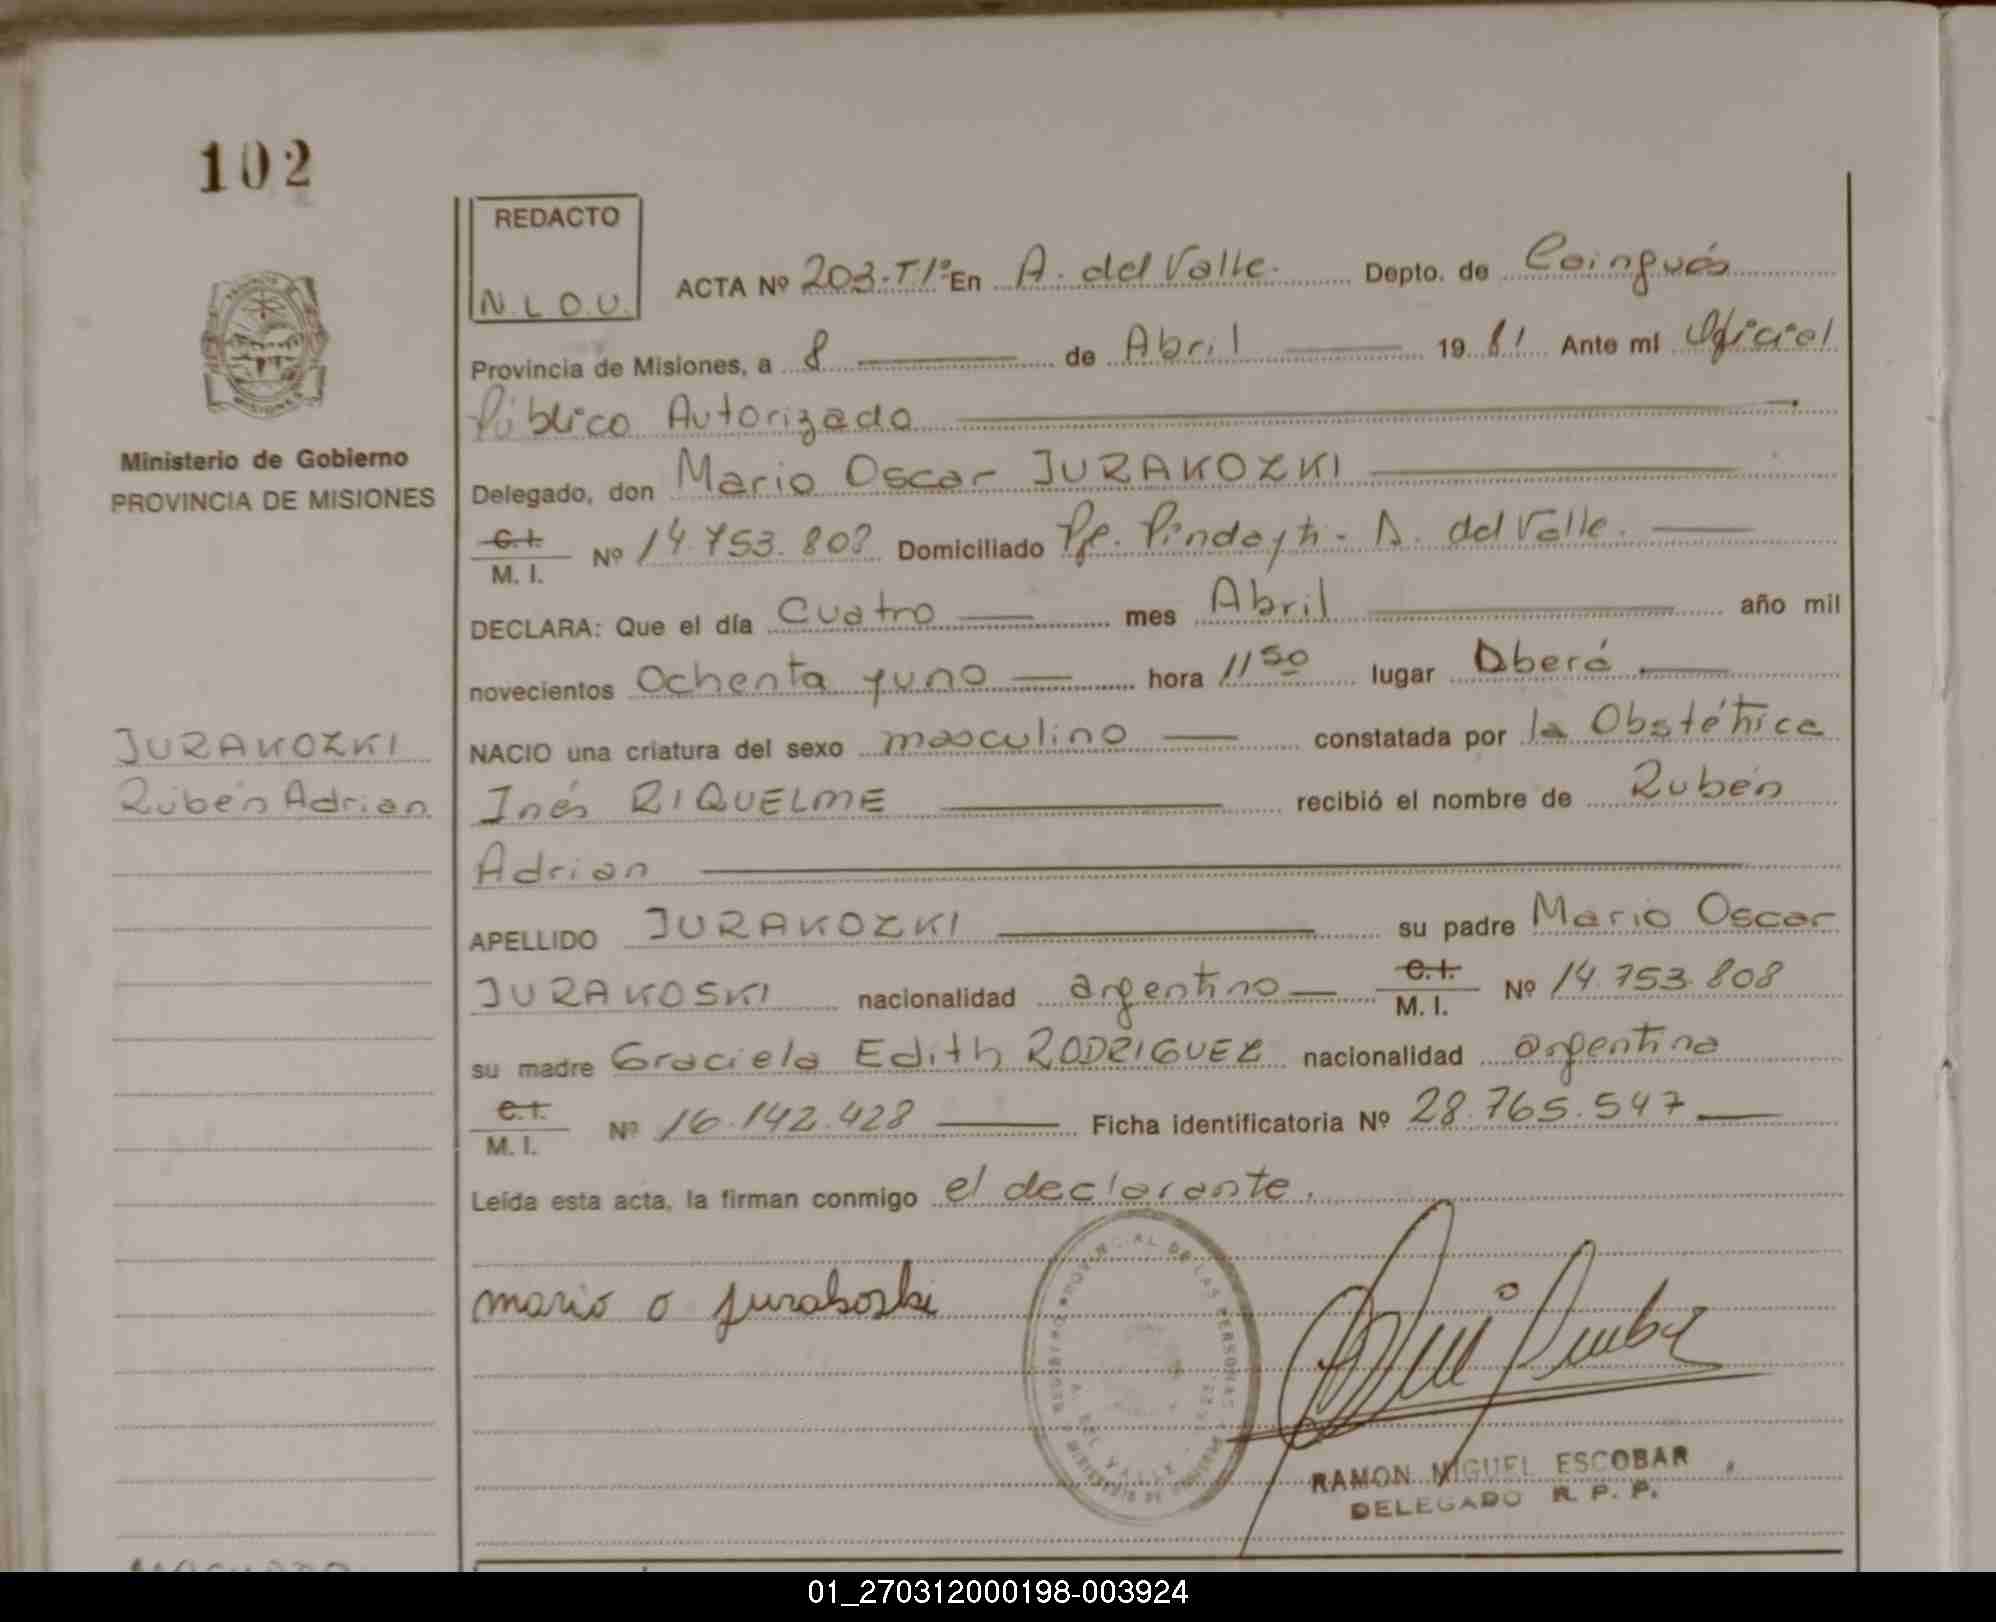 102
REDACTO
N.L.O.U.
ACTA Nº 203-T1º En A. del Valle. Depto. de Caingués
Provincia de Misiones, a 8 de Abril 1981 Ante mí Oficial
Público Autorizado
Delegado, don Mario Oscar JURAKOZKI
C.I.
M. I. Nº 14.753.808 Domiciliado Pje. Pindayti - A. del Valle.
DECLARA: Que el día Cuatro mes Abril año mil
novecientos Ochenta y uno hora 11 50 lugar Oberá
NACIO una criatura del sexo masculino constatada por la Obstétrica
Inés RIQUELME recibió el nombre de Rubén
Adrian
APELLIDO JURAKOZKI su padre Mario Oscar
JURAKOSKI nacionalidad argentino C.I. M. I. Nº 14.753.808
su madre Graciela Edith RODRIGUEZ nacionalidad argentina
C.I.
M. I. Nº 16.142.428 Ficha identificatoria Nº 28.765.547
Leída esta acta, la firman conmigo el declarante.
mario o juraboski
RAMON MIGUEL ESCOBAR
DELEGADO R. P. P.
MISIONES
Ministerio de Gobierno
PROVINCIA DE MISIONES
JURAKOZKI
Rubén Adrian
A. DEL VALLE
01_270312000198-003924